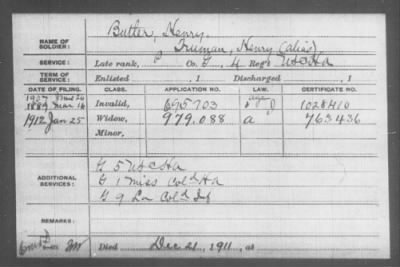 NAME OF SOLDIER: Butler, Henry.
Truman, Henry (alias),
SERVICE: Late rank, P Co. G, 4 Reg't US C HA
TERM OF SERVICE: Enlisted , 1 Discharged , 1
DATE OF FILING. CLASS. APPLICATION NO. LAW. CERTIFICATE NO.
1907
1889 Mar 16 Invalid, 695703 1028410
1912 Jan 25 Widow, 979.088 a 763436
Minor,
ADDITIONAL SERVICES: G 5 US C HA
G 1 Miss Cold HA
G 9 La Cold Inf
REMARKS:
Died Dec 21, 1911, at